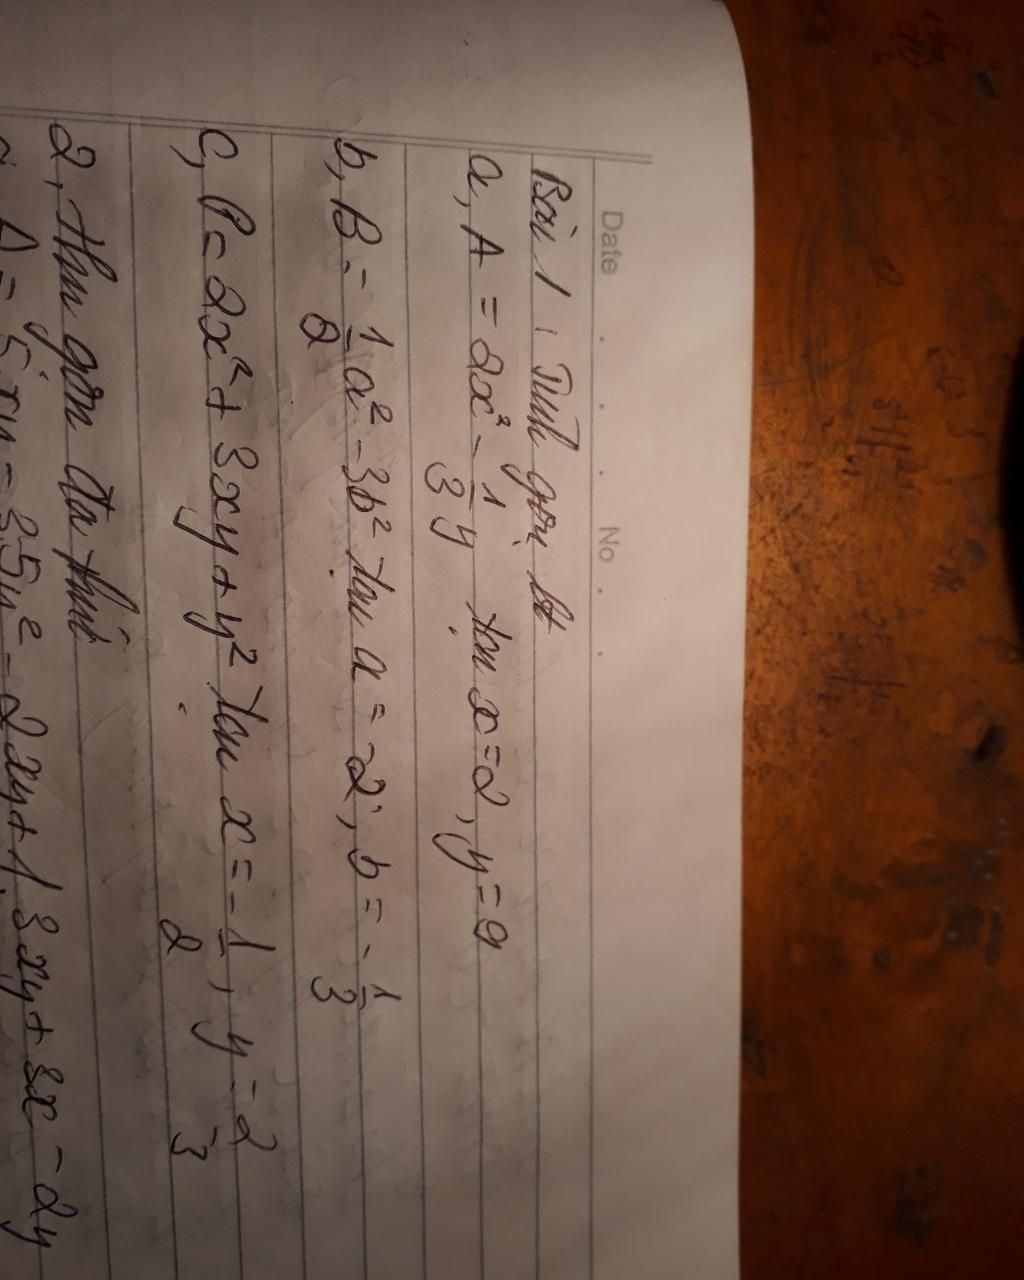 Date . . . No . .
Bài 1 : Tính giá trị bt
a, A = 2x³ - 1/3 y tại x = 2, y = 9
b, B = 1/2 a² - 3b² tại a = -2, b = -1/3
c, P = 2x² + 3xy + y² tại x = -1/2, y = 2/3
2, thu gọn đa thức
A = 5xy - 3,5y² - 2xy + 1,3xy + 3x - 2y